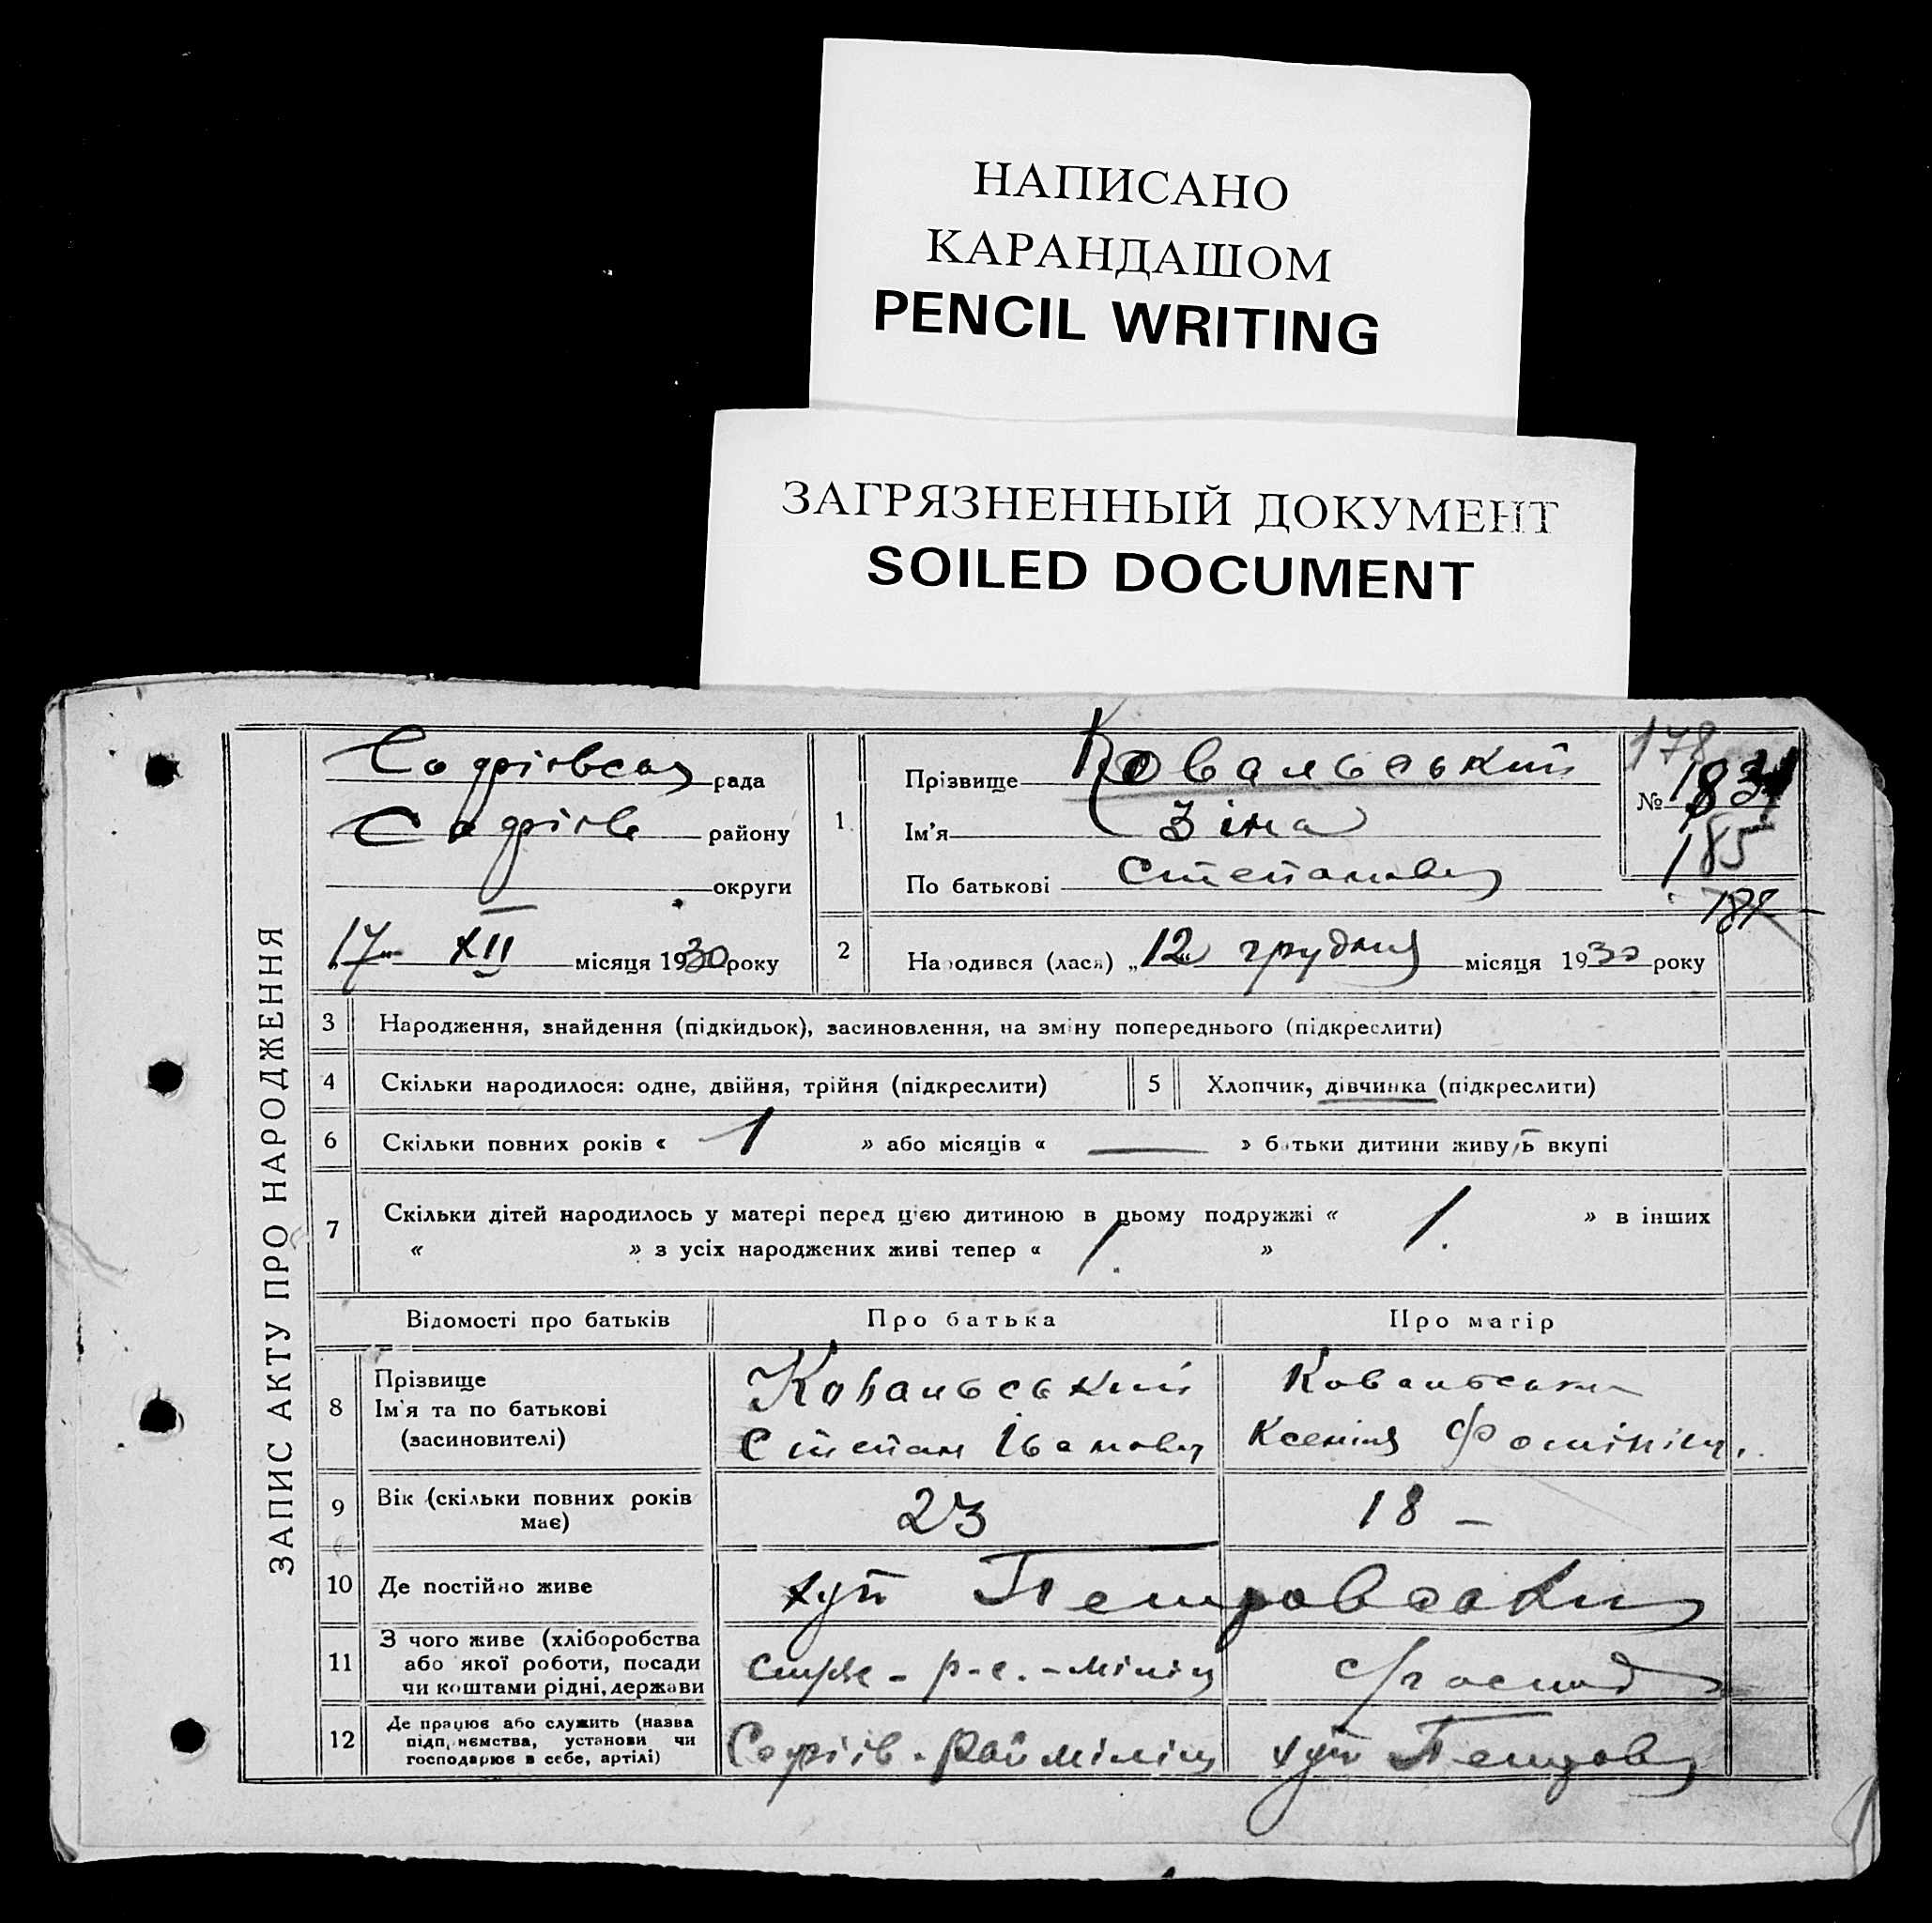 НАПИСАНО
КАРАНДАШОМ
PENCIL WRITING
ЗАГРЯЗНЕННЫЙ ДОКУМЕНТ
SOILED DOCUMENT
ЗАПИС АКТУ ПРО НАРОДЖЕННЯ
рада
району
округи
„17“ XII місяця 1930 року
1 Прізвище Ковальський
Ім'я Зіна
По батькові Степановн
178
№ 183
185
2 Народився (лася) „12“ грудня місяця 1930 року
3 Народження, знайдення (підкидьок), засиновлення, на зміну попереднього (підкреслити)
4 Скільки народилося: одне, двійня, трійня (підкреслити)
5 Хлопчик, дівчинка (підкреслити)
6 Скільки повних років « 1 » або місяців « — » батьки дитини живуть вкупі
7 Скільки дітей народилось у матері перед цією дитиною в цьому подружжі « 1. » в інших
« » з усіх народжених живі тепер « 1. »
Відомості про батьків Про батька Про матір
8 Прізвище
Ім'я та по батькові
(засиновителі)
Ковальський
Степан Іванович
Ковальськи
Ксенія
9 Вік (скільки повних років
має)
23
18 –
10 Де постійно живе
хут Петровськи
11 З чого живе (хліборобства
або якої роботи, посади
чи коштами рідні, держави
р-с.-міліц
с/господ
12 Де працює або служить (назва
підприємства, установи чи
господарює в себе, артілі)
Софіїв. Рай міліц
хут Петров